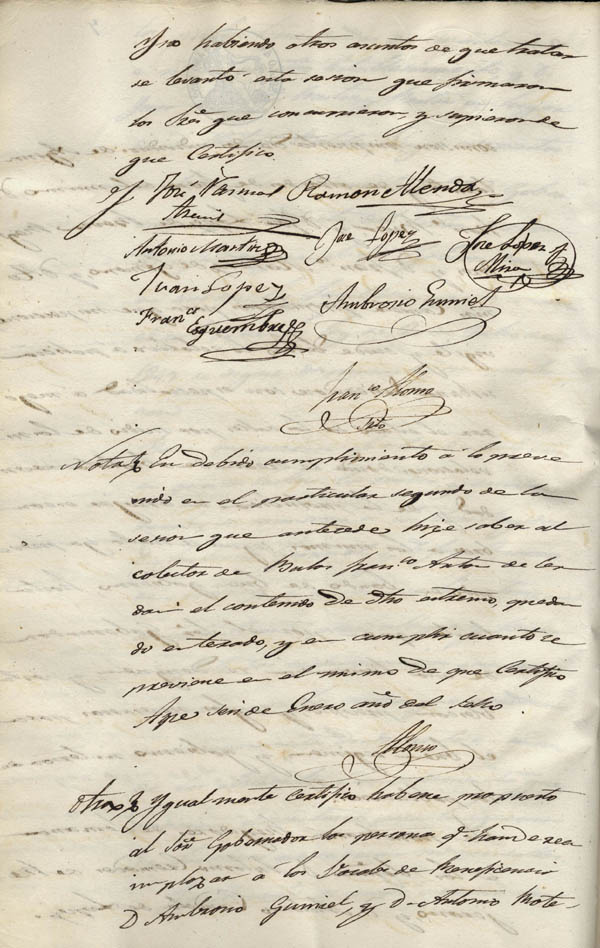 Y no habiendo otros asuntos de que tratar
se levantó esta sesion que firmaron
los Sres que concurrieron, y supieron de
que Certifico
José Ramon Allenda
Antonio Martinez Jose Lopez Jose Lopez
Mira
Juan Lopez
Franco Esquembre Ambrosio Gumiel
Franco Alonso
Srio
Nota En debido cumplimiento á lo preve
nido en el particular segundo de la
sesion que antecede hize saber al
colector de Bulas Franco Anton de
el contenido de dho estremo, quedan
do enterado, y en cumplir cuanto se
previene en el mismo de que Certifico
Aspe seis de Enero año del sello
Alonso
Otra Ygualmente Certifico haberse propuesto
al Sor Gobernador las personas q. han de ree
mplazar a los Vocales de Beneficencia
D Ambrosio Gumiel, y D. Antonio